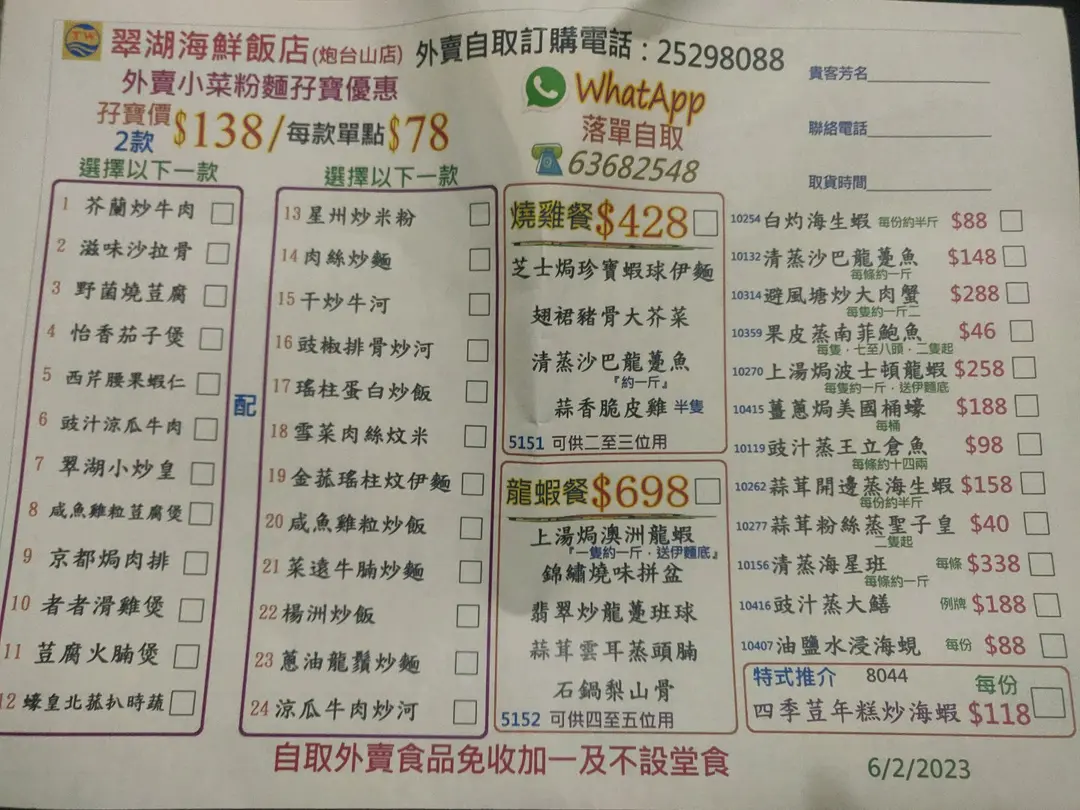 TW
翠湖海鮮飯店(炮台山店) 外賣自取訂購電話：25298088
外賣小菜粉麵孖寶優惠
孖寶價
2款 $138/每款單點$78
WhatApp
落單自取
63682548
貴客芳名
聯絡電話
取貨時間
選擇以下一款
1 芥蘭炒牛肉
2 滋味沙拉骨
3 野菌燒荳腐
4 怡香茄子煲
5 西芹腰果蝦仁
6 豉汁涼瓜牛肉
7 翠湖小炒皇
8 咸魚雞粒荳腐煲
9 京都焗肉排
10 者者滑雞煲
11 荳腐火腩煲
12 蠔皇北菰扒時蔬
配
選擇以下一款
13 星州炒米粉
14 肉絲炒麵
15 干炒牛河
16 豉椒排骨炒河
17 瑤柱蛋白炒飯
18 雪菜肉絲炆米
19 金菰瑤柱炆伊麵
20 咸魚雞粒炒飯
21 菜遠牛腩炒麵
22 楊洲炒飯
23 蔥油龍鬚炒麵
24 涼瓜牛肉炒河
燒雞餐$428
芝士焗珍寶蝦球伊麵
翅裙豬骨大芥菜
清蒸沙巴龍躉魚
『約一斤』
蒜香脆皮雞 半隻
5151 可供二至三位用
龍蝦餐$698
上湯焗澳洲龍蝦
『一隻約一斤．送伊麵底』
錦繡燒味拼盆
翡翠炒龍躉班球
蒜茸雲耳蒸頭腩
石鍋梨山骨
5152 可供四至五位用
10254 白灼海生蝦 每份約半斤 $88
10132 清蒸沙巴龍躉魚 $148
每條約一斤
10314 避風塘炒大肉蟹 $288
每隻約一斤二
10359 果皮蒸南菲鮑魚 $46
每隻．七至八頭．二隻起
10270 上湯焗波士頓龍蝦 $258
每隻約一斤．送伊麵底
10415 薑蔥焗美國桶蠔 $188
每桶
10119 豉汁蒸王立倉魚 $98
每條約十四兩
10262 蒜茸開邊蒸海生蝦 $158
每份約半斤
10277 蒜茸粉絲蒸聖子皇 $40
二隻起
10156 清蒸海星班 每條 $338
每條約一斤
10416 豉汁蒸大鱔 例牌 $188
10407 油鹽水浸海蜆 每份 $88
特式推介 8044 每份
四季荳年糕炒海蝦 $118
自取外賣食品免收加一及不設堂食
6/2/2023